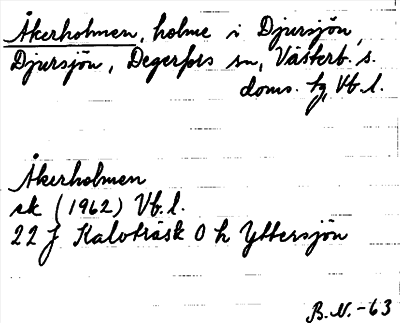 Åkerholmen, holme i Djursjön,
Djursjön, Degerfors sn, Västerb. s.
doms. tg, Vb. l.
Åkerholmen
sk (1962) Vb. l.
22 J Kalvträsk 0 h Yttersjön
B.N. -63